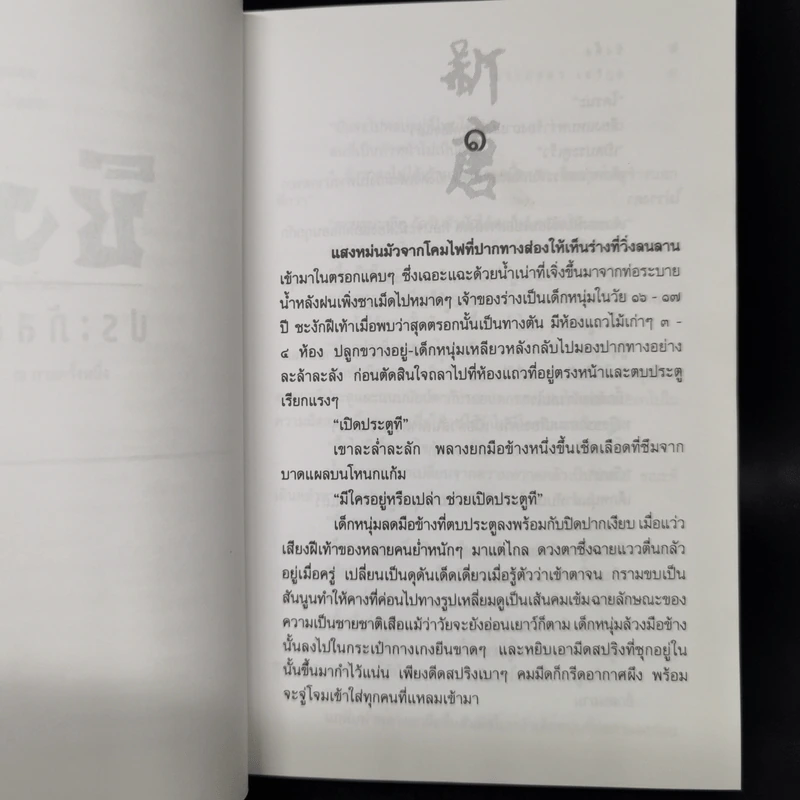 新
๑
唐
แสงหม่นมัวจากโคมไฟที่ปากทางส่องให้เห็นร่างที่วิ่งลนลาน
เข้ามาในตรอกแคบๆ ซึ่งเฉอะแฉะด้วยน้ำเน่าที่เจิ่งขึ้นมาจากท่อระบาย
น้ำหลังฝนเพิ่งซาเม็ดไปหมาดๆ เจ้าของร่างเป็นเด็กหนุ่มในวัย ๑๖ - ๑๗
ปี ชะงักฝีเท้าเมื่อพบว่าสุดตรอกนั้นเป็นทางตัน มีห้องแถวไม้เก่าๆ ๓ -
๔ ห้อง ปลูกขวางอยู่-เด็กหนุ่มเหลียวหลังกลับไปมองปากทางอย่าง
ละล้าละลัง ก่อนตัดสินใจถลาไปที่ห้องแถวที่อยู่ตรงหน้าและตบประตู
เรียกแรงๆ
“เปิดประตูที”
เขาละล่ำละลัก พลางยกมือข้างหนึ่งขึ้นเช็ดเลือดที่ซึมจาก
บาดแผลบนโหนกแก้ม
“มีใครอยู่หรือเปล่า ช่วยเปิดประตูที”
เด็กหนุ่มลดมือข้างที่ตบประตูลงพร้อมกับปิดปากเงียบ เมื่อแว่ว
เสียงฝีเท้าของหลายคนย่ำหนักๆ มาแต่ไกล ดวงตาซึ่งฉายแววตื่นกลัว
อยู่เมื่อครู่ เปลี่ยนเป็นดุดันเด็ดเดี่ยวเมื่อรู้ตัวว่าเข้าตาจน กรามขบเป็น
สันนูนทำให้คางที่ค่อนไปทางรูปเหลี่ยมดูเป็นเส้นคมเข้มฉายลักษณะของ
ความเป็นชายชาติเสือแม้ว่าวัยจะยังอ่อนเยาว์ก็ตาม เด็กหนุ่มล้วงมือข้าง
นั้นลงไปในกระเป๋ากางเกงยีนขาดๆ และหยิบเอามีดสปริงที่ซุกอยู่ใน
นั้นขึ้นมากำไว้แน่น เพียงดีดสปริงเบาๆ คมมีดก็กรีดอากาศผึง พร้อม
จะจู่โจมเข้าใส่ทุกคนที่แหลมเข้ามา